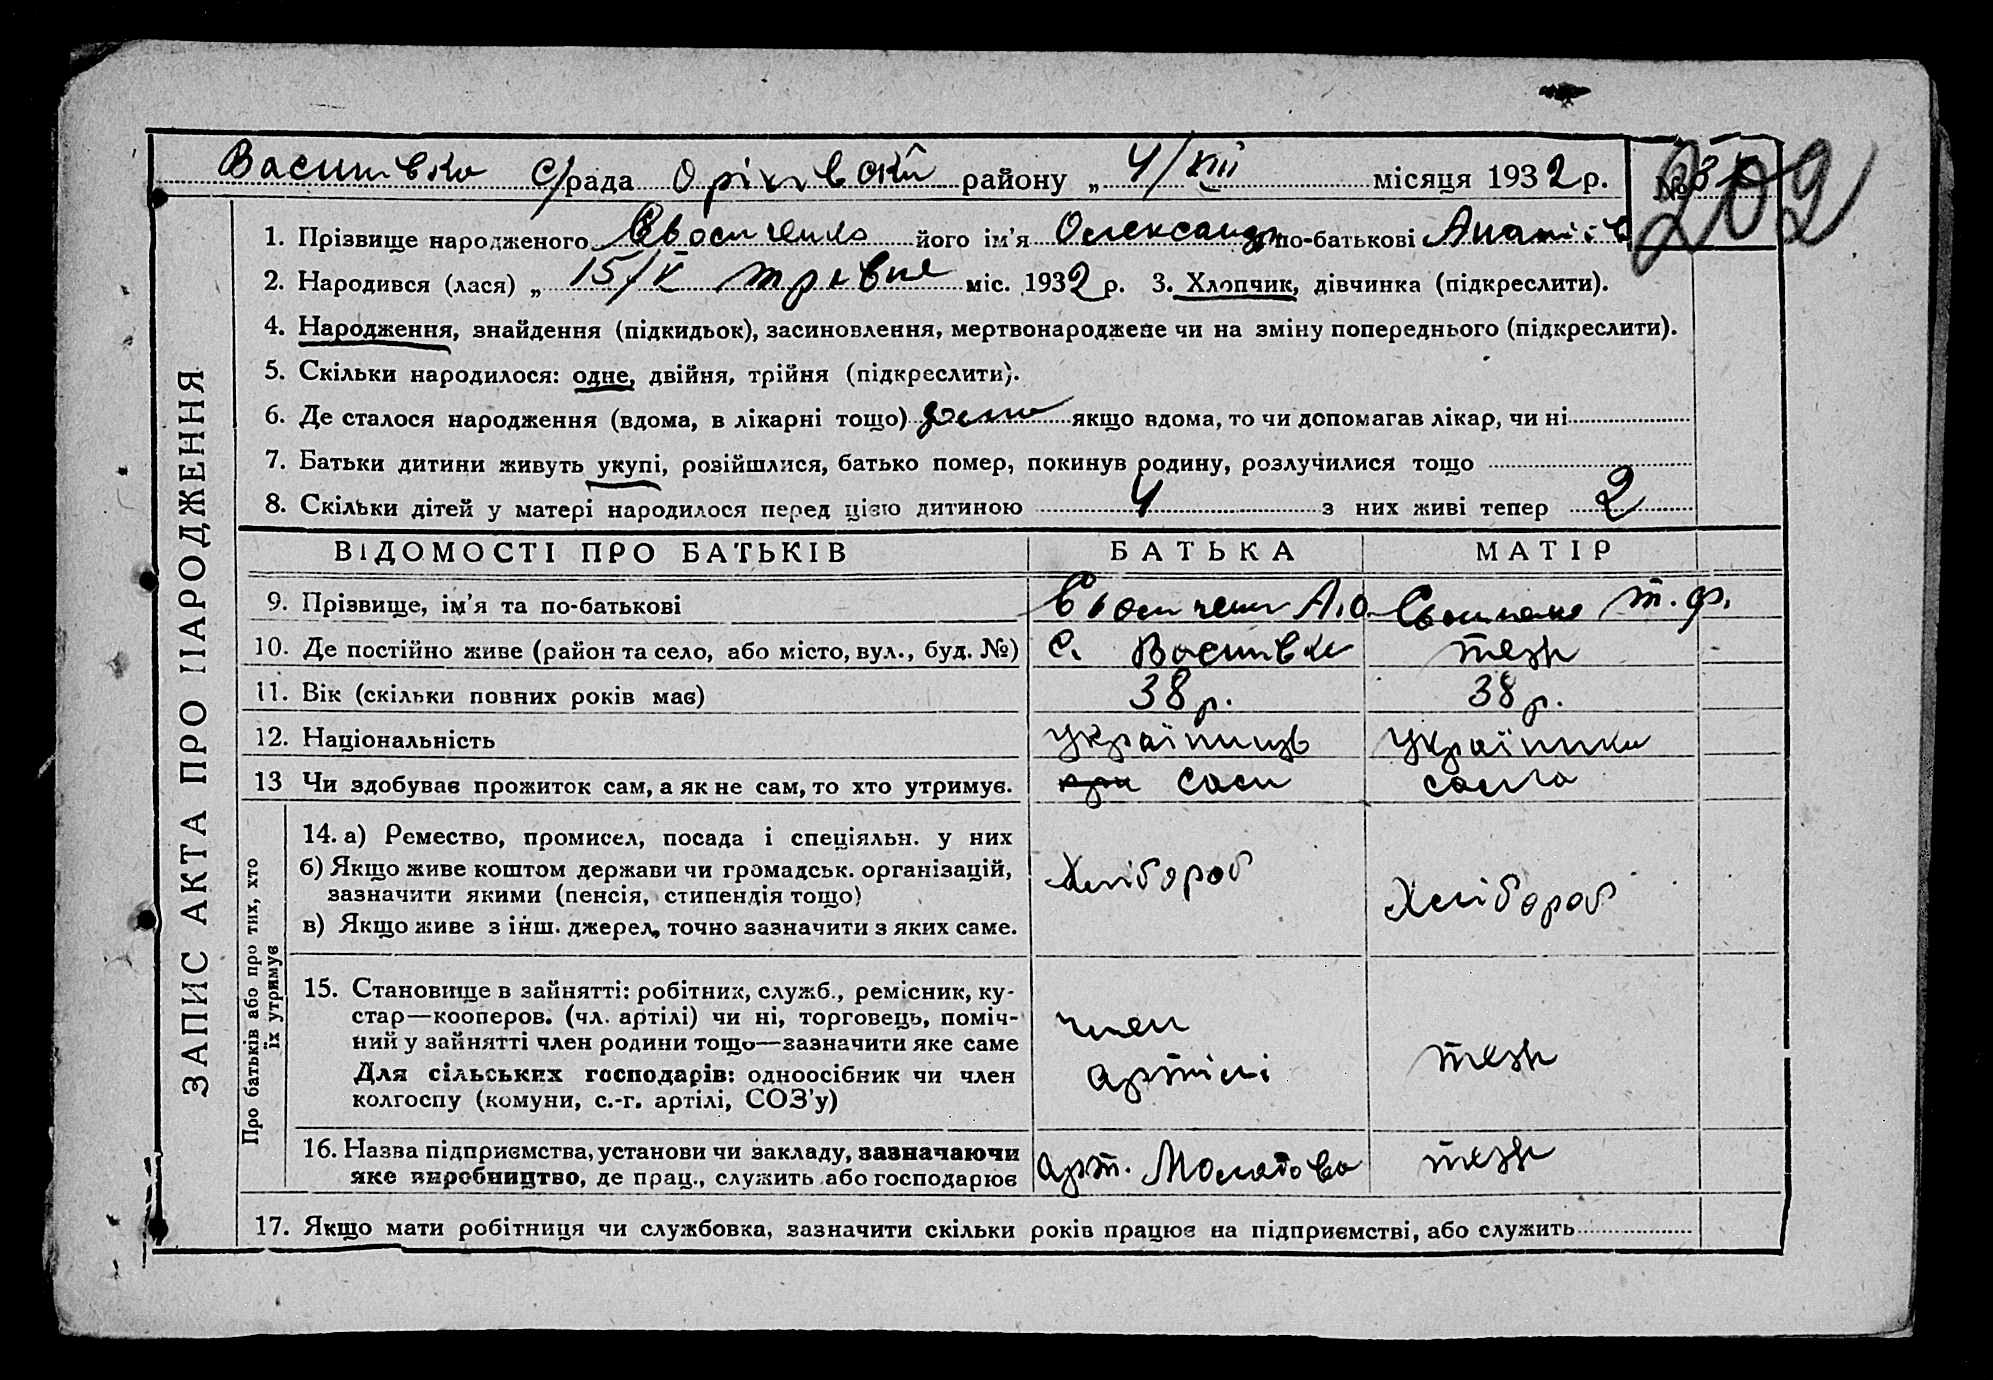 Василівка с/рада Оріхівський району „ 4/XII місяця 1932 р. № 202
1. Прізвище народженого його ім'я Олександр по-батькові Ананіїв
2. Народився (лася) „ 15/V травня міс. 1932 р. 3. Хлопчик, дівчинка (підкреслити).
4. Народження, знайдення (підкидьок), засиновлення, мертвонароджене чи на зміну попереднього (підкреслити).
5. Скільки народилося: одне, двійня, трійня (підкреслити).
6. Де сталося народження (вдома, в лікарні тощо) дома якщо вдома, то чи допомагав лікар, чи ні
7. Батьки дитини живуть укупі, розійшлися, батько помер, покинув родину, розлучилися тощо
8. Скільки дітей у матері народилося перед цією дитиною 4 з них живі тепер 2
ЗАПИС АКТА ПРО НАРОДЖЕННЯ
ВІДОМОСТІ ПРО БАТЬКІВ БАТЬКА МАТІР
9. Прізвище, ім'я та по-батькові А. О. Т. Ф.
10. Де постійно живе (район та село, або місто, вул., буд. №) с. Василівка теж
11. Вік (скільки повних років має) 38 р. 38 р.
12. Національність українець українка
13 Чи здобуває прожиток сам, а як не сам, то хто утримує. сам сама
Про батьків або про тих, хто
їх утримує
14. а) Ремество, промисел, посада і спеціяльн. у них
б) Якщо живе коштом держави чи громадськ. організацій,
зазначити якими (пенсія, стипендія тощо)
в) Якщо живе з інш. джерел, точно зазначити з яких саме.
Хлібороб Хлібороб
15. Становище в зайнятті: робітник, служб., ремісник, ку-
стар—кооперов. (чл. артілі) чи ні, торговець, поміч-
ний у зайнятті член родини тощо—зазначити яке саме
Для сільських господарів: одноосібник чи член
колгоспу (комуни, с.-г. артілі, СОЗ'у)
член
артілі теж
16. Назва підприємства, установи чи закладу, зазначаючи
яке виробництво, де прац., служить або господарює
арт. Молотова теж
17. Якщо мати робітниця чи службовка, зазначити скільки років працює на підприємстві, або служить